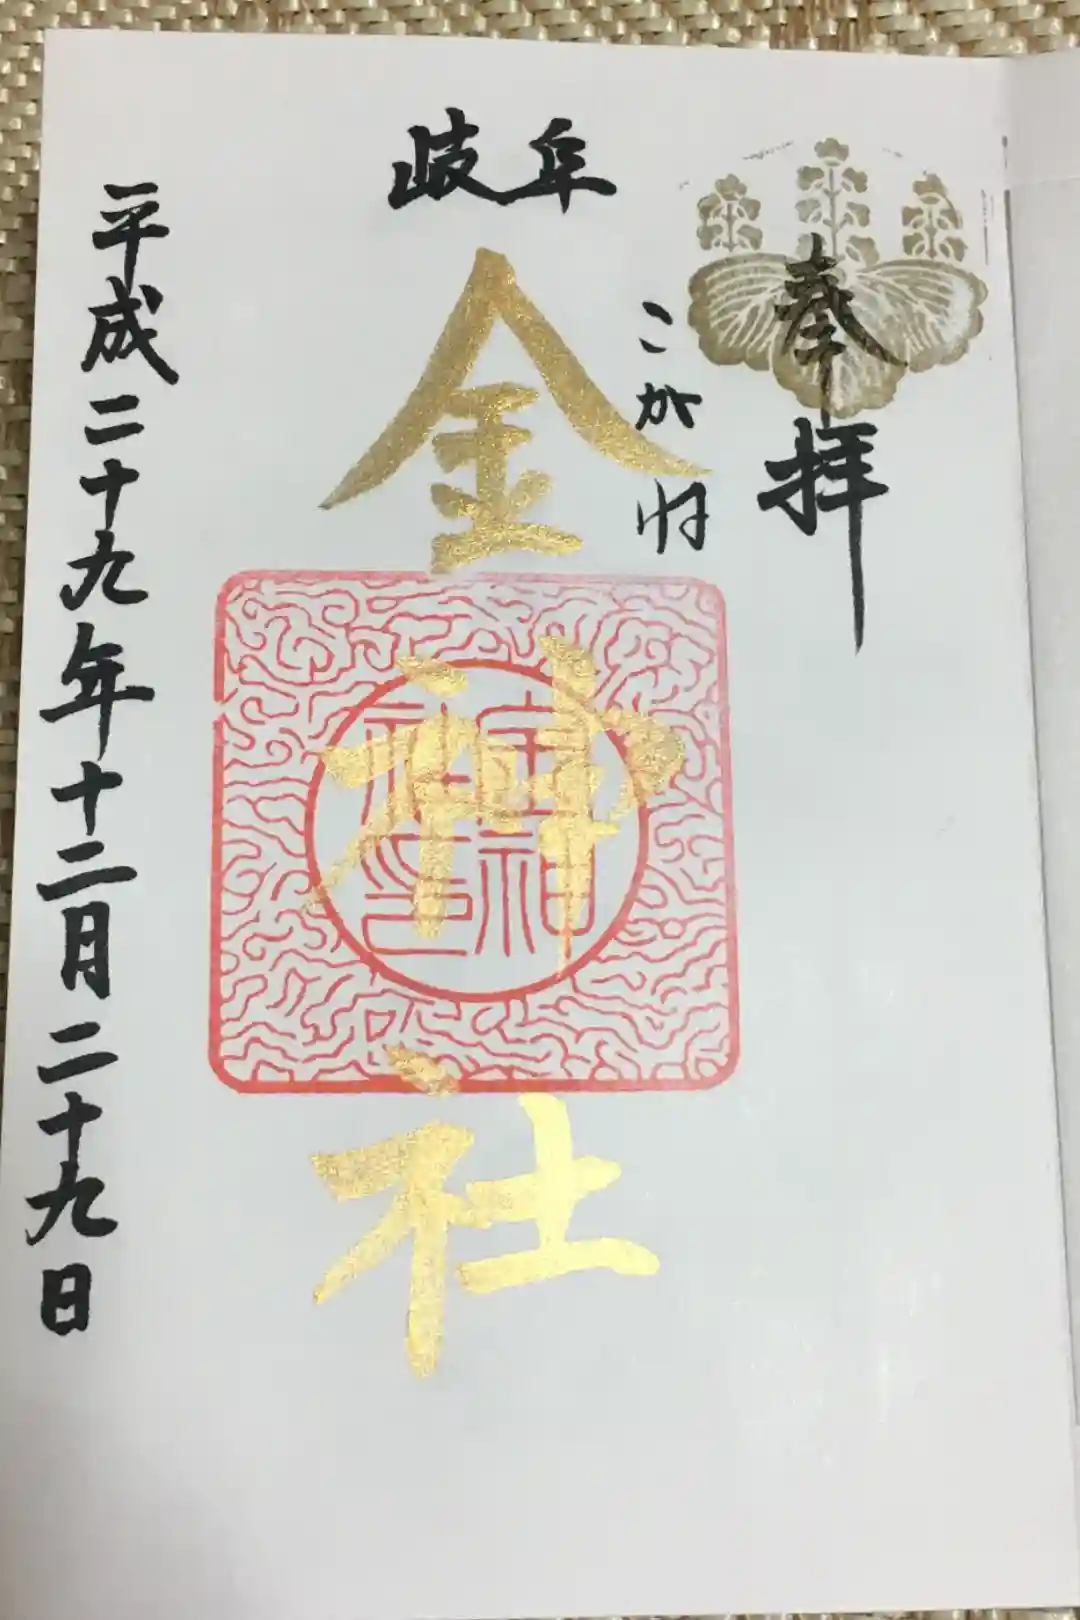 奉拝
岐阜
こがね
金神社
金神社印
平成二十九年十二月二十九日